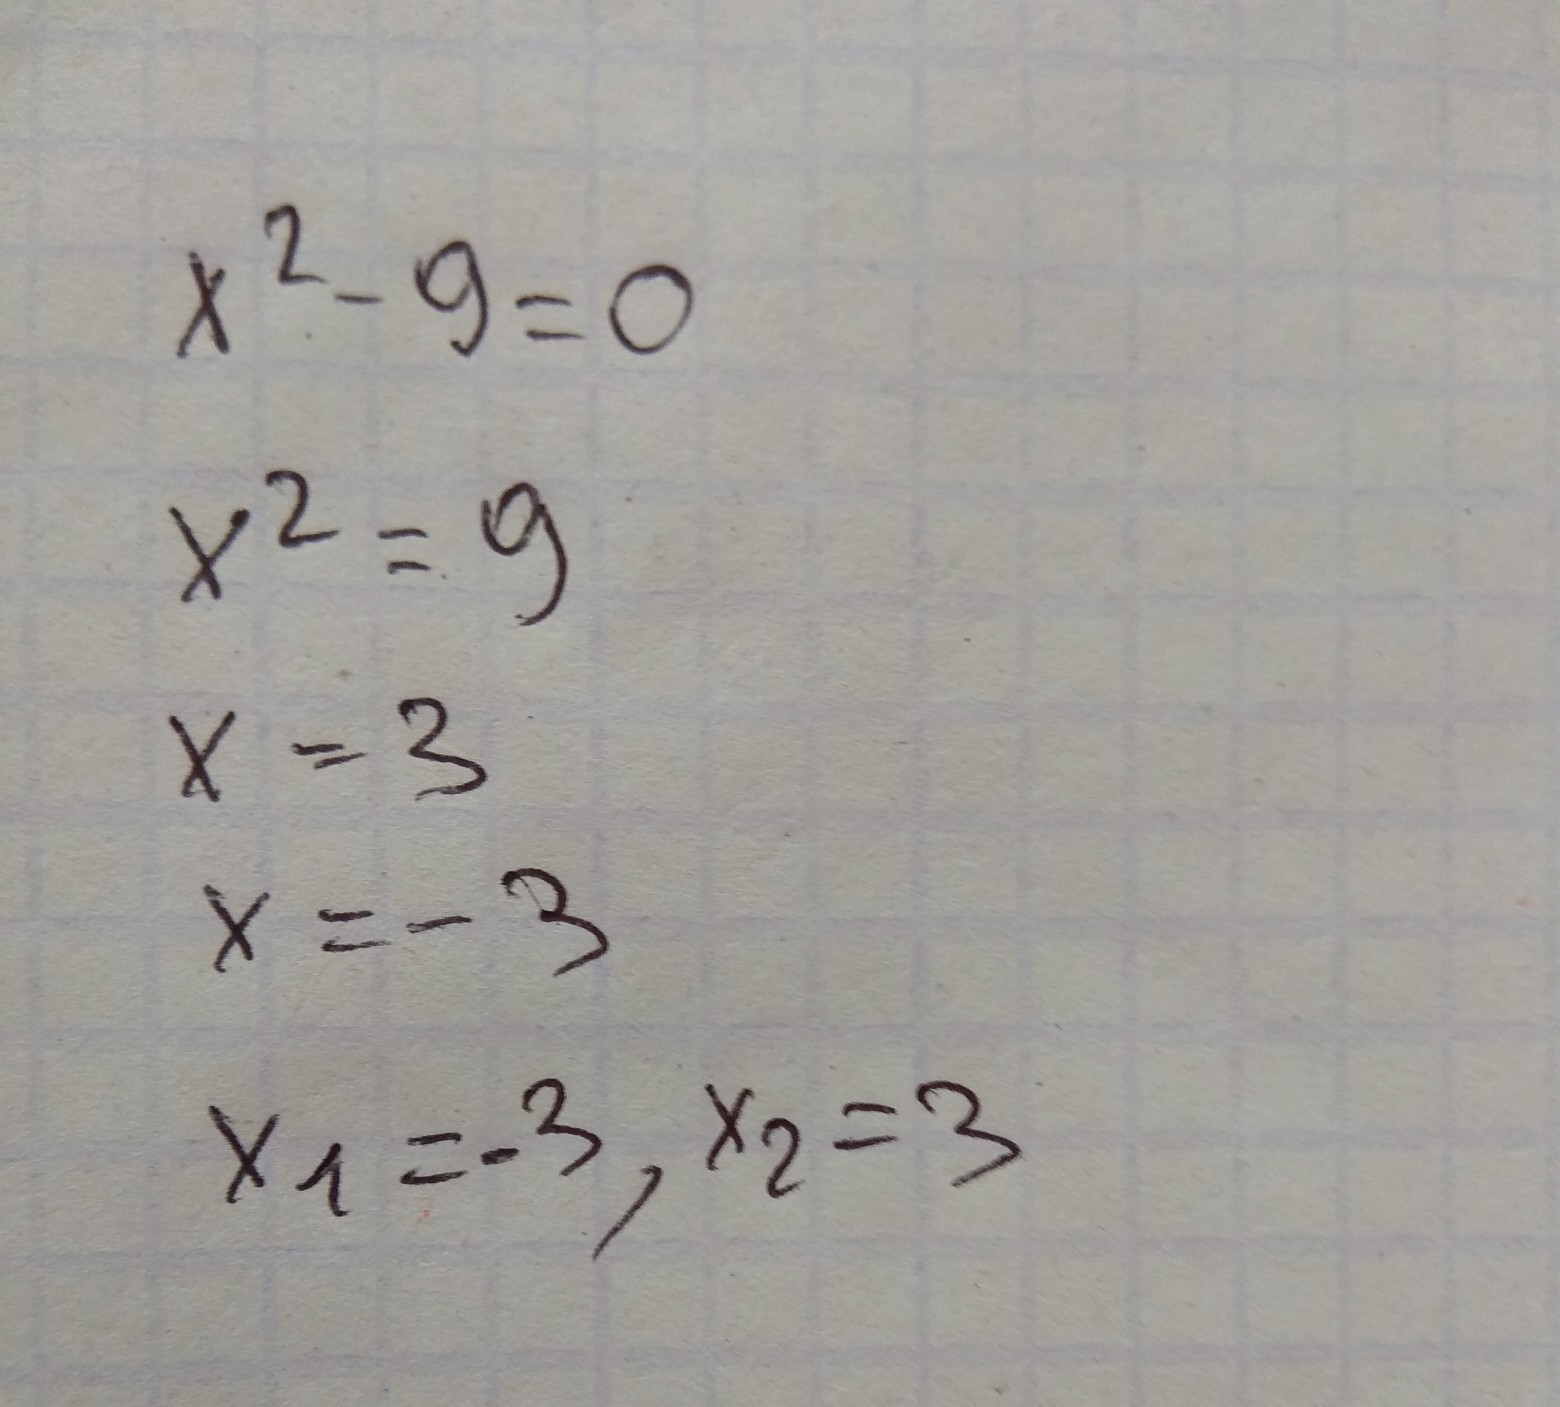 x² - 9 = 0
x² = 9
x = 3
x = - 3
x₁ = -3, x₂ = 3